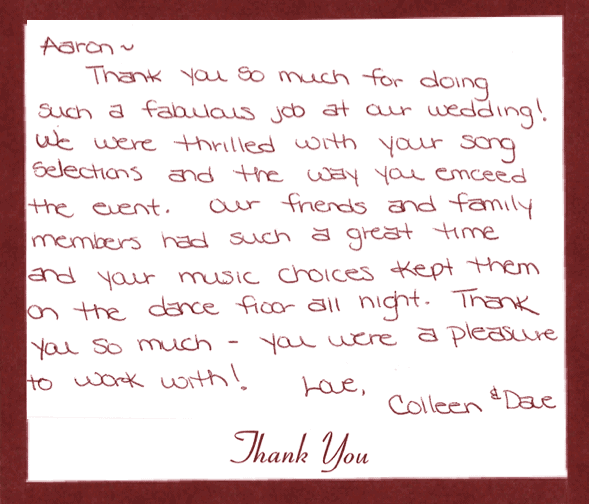 Aaron ~
Thank you so much for doing
such a fabulous job at our wedding!
We were thrilled with your song
selections and the way you emceed
the event. Our friends and family
members had such a great time
and your music choices kept them
on the dance floor all night. Thank
you so much - you were a pleasure
to work with! Love,
Colleen & Dave
Thank You